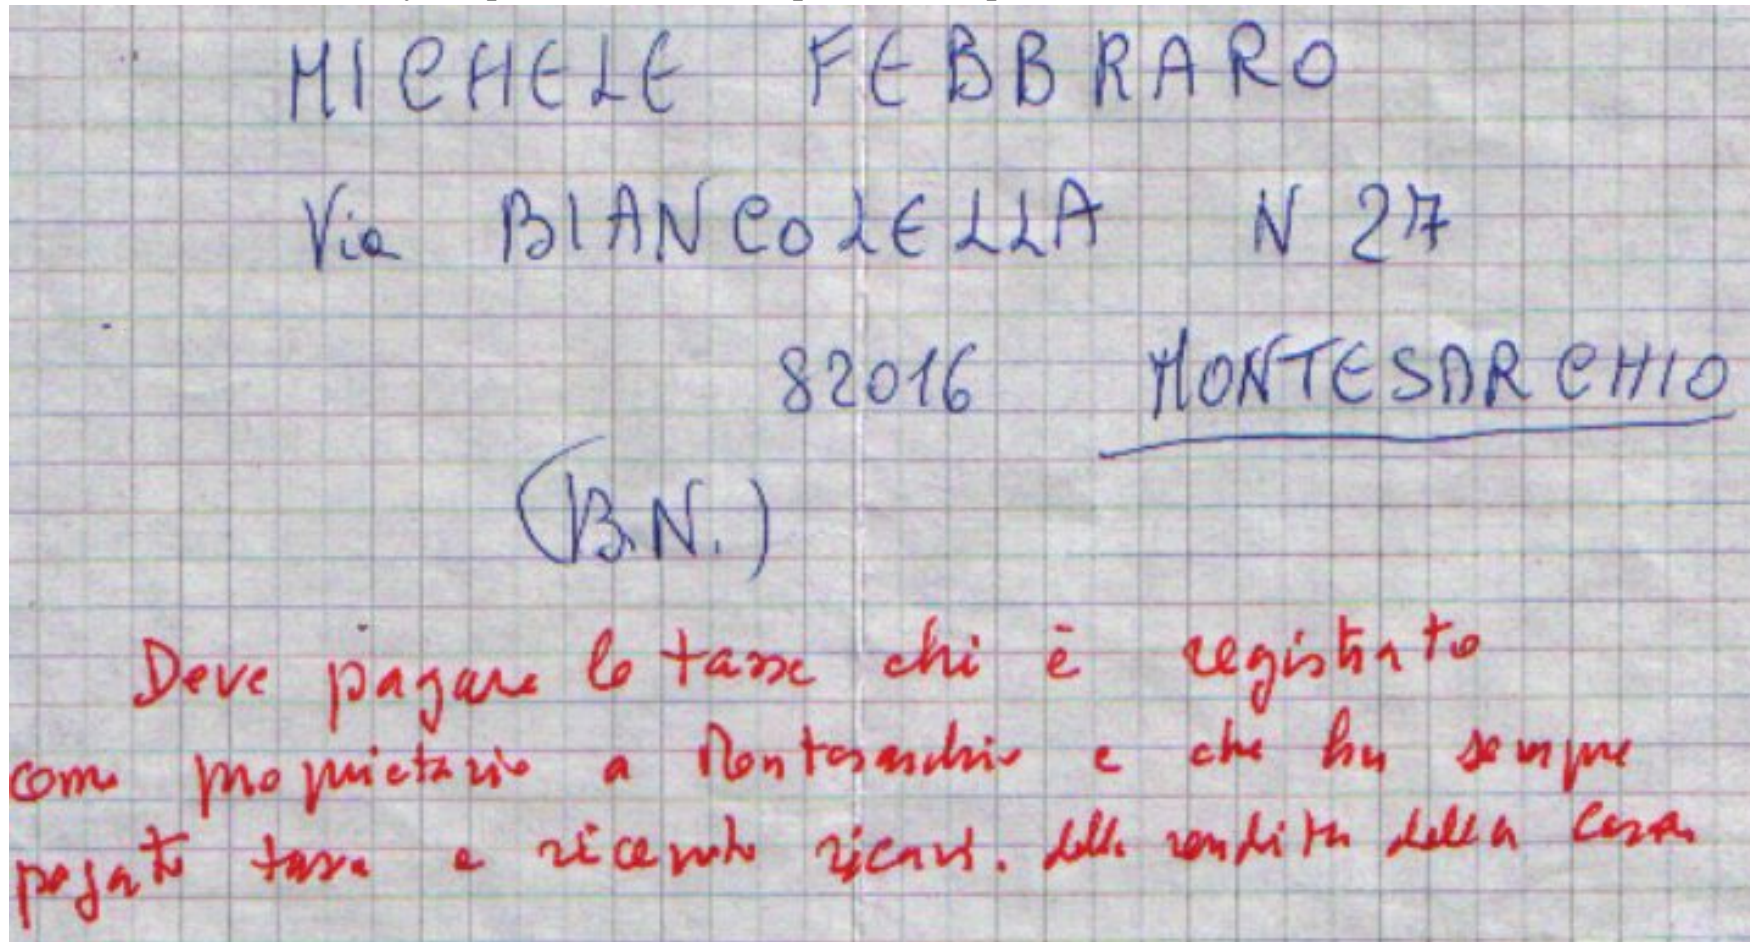 MICHELE FEBBRARO
Via BIANCOLELLA N 27
82016 MONTESARCHIO
(B.N.)
Deve pagare le tasse chi è registrato
come proprietario a Montesarchio e che ha sempre
pagato tasse e ricevuto ricavi. della rendita della casa